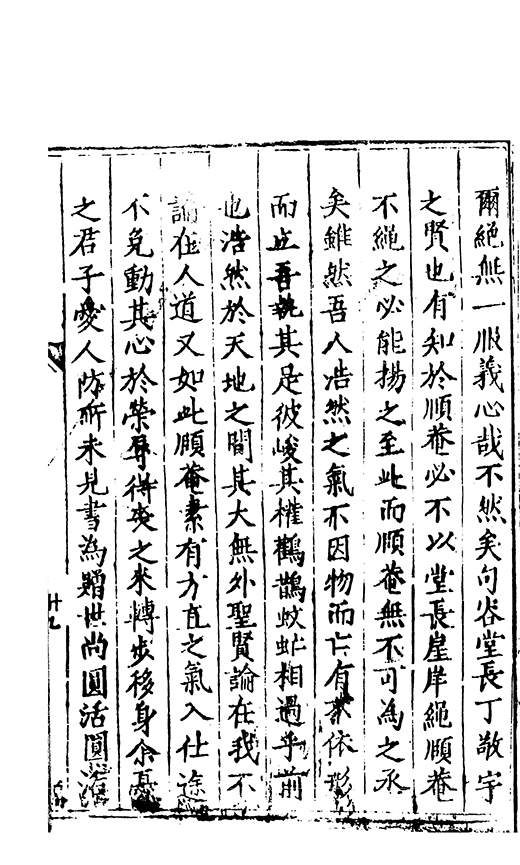 爾絕無一服義心哉不然矣句容堂長丁敬宇
之賢也有知於順菴必不以堂長崖岸繩順菴
不繩之必能揚之至此而順菴無不可為之丞
矣雖然吾人浩然之氣不因物而亡有不依形
而立吾孰其是彼峻其權鸛鵲蚊虻相過乎前
也浩然於天地之間其大無外聖賢論在我不
論在人道又如此順菴素有方直之氣入仕途
不免動其心於榮辱得喪之來轉步移身余甚
之君子愛人防所未見書為贈世尚圓活圓活
十九